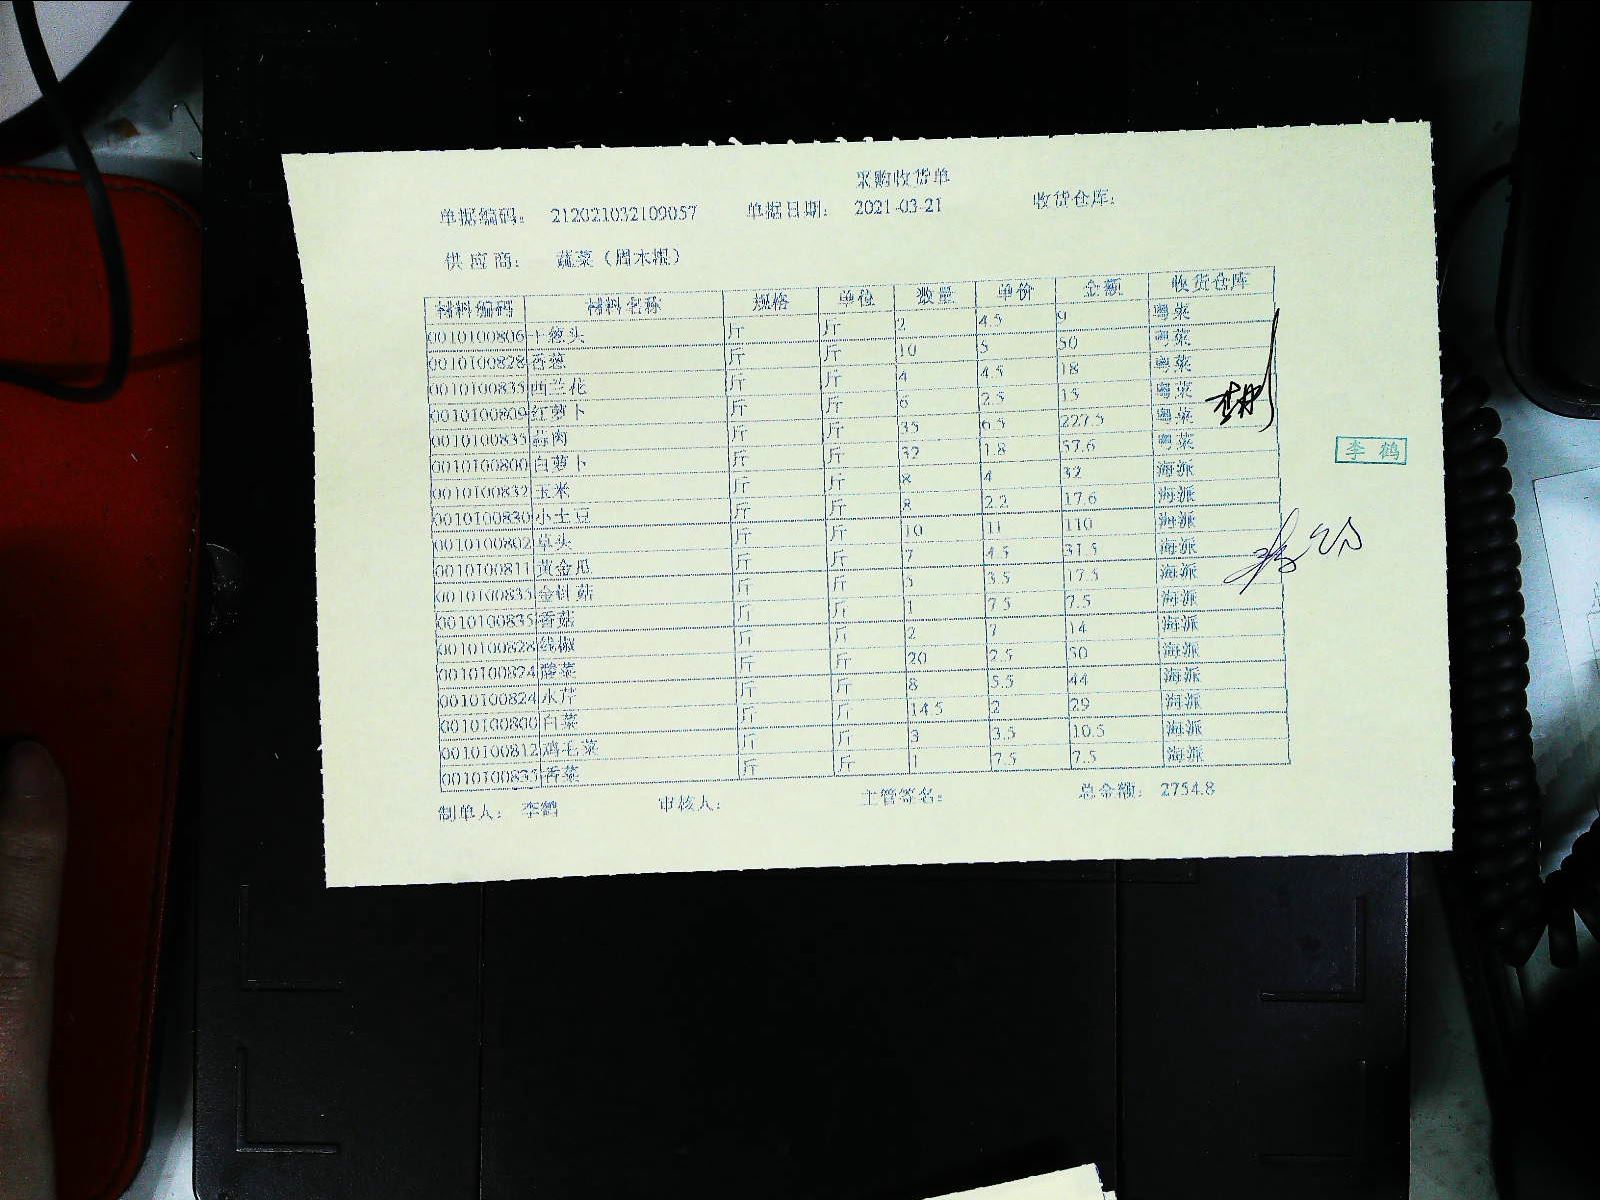 采购收货单
单据编码: 212021032109057 单据日期: 2021-03-21 收货仓库:
供应商: 蔬菜（周木根）
材料编码 材料名称 规格 单位 数量 单价 金额 收货仓库
0010100806 干葱头 斤 斤 2 4.5 9 粤菜
0010100828 香葱 斤 斤 10 5 50 粤菜
0010100835 西兰花 斤 斤 4 4.5 18 粤菜
0010100809 红萝卜 斤 斤 6 2.5 15 粤菜
0010100835 蒜肉 斤 斤 35 6.5 227.5 粤菜
0010100800 白萝卜 斤 斤 32 1.8 57.6 粤菜
0010100832 玉米 斤 斤 8 4 32 海派
0010100830 小土豆 斤 斤 8 2.2 17.6 海派
0010100802 草头 斤 斤 10 11 110 海派
0010100811 黄金瓜 斤 斤 7 4.5 31.5 海派
0010100835 金针菇 斤 斤 5 3.5 17.5 海派
0010100835 香菇 斤 斤 1 7.5 7.5 海派
0010100828 线椒 斤 斤 2 7 14 海派
0010100824 酸菜 斤 斤 20 2.5 50 海派
0010100824 水芹 斤 斤 8 5.5 44 海派
0010100800 白菜 斤 斤 14.5 2 29 海派
0010100812 鸡毛菜 斤 斤 3 3.5 10.5 海派
0010100835 香菜 斤 斤 1 7.5 7.5 海派
李鹤
制单人: 李鹤 审核人: 主管签名: 总金额: 2754.8